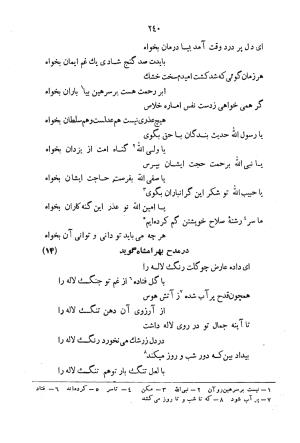 ۲۴۰
ای دل پر درد وقت آمد بیا درمان بخواه
بایدت صد گنج شادی یك غم ایمان بخواه
هرزمان گوئی که شد کشت امیدم سخت خشك
ابر رحمت هست برسرهین بیا۱ باران بخواه
گر همی خواهی زدست نفس اماره خلاص
هیچ عذری نیست هم عدلست وهم سلطان بخواه
یا رسول الله حدیث بندگان با حق بگوی
یا ولی الله۲ گناه امت از یزدان بخواه
یا نبی الله برحمت حجت ایشان بپرس
یا صفی الله بفرست حاجت ایشان بخواه
یا حبیب الله تو شکر این گرانباران بگوی
یا امین الله تو عذر این گنه کاران بخواه
ما سر رشتهٔ صلاح خویشتن گم کرده‌ایم
هر چه می باید تو دانی و توانی آن بخواه
درمدح بهرامشاه گوید (۱۴)
ای داده عارض چو گلت رنگ لاله را
با گل فتاده از غم تو جنگ لاله را
همچون قدح پر آب شده ز آتش هوس
از آرزوی آن دهن تنگ لاله را
تا آینه جمال تو در روی لاله داشت
در دل زرشك می نخورد رنگ لاله را
بیداد بین که دور شب و روز میکند۸
با لعل تنگ بار توهم تنگ لاله را
۱ـ نیست برسرهین روآن ۲ـ نبی الله ۳ـ مکن ۴ـ تاسر ۵ـ کرده‌اند ۶ـ فتاد
۷ـ پر آب شود ۸ـ که تا شب و تا روز می کشد